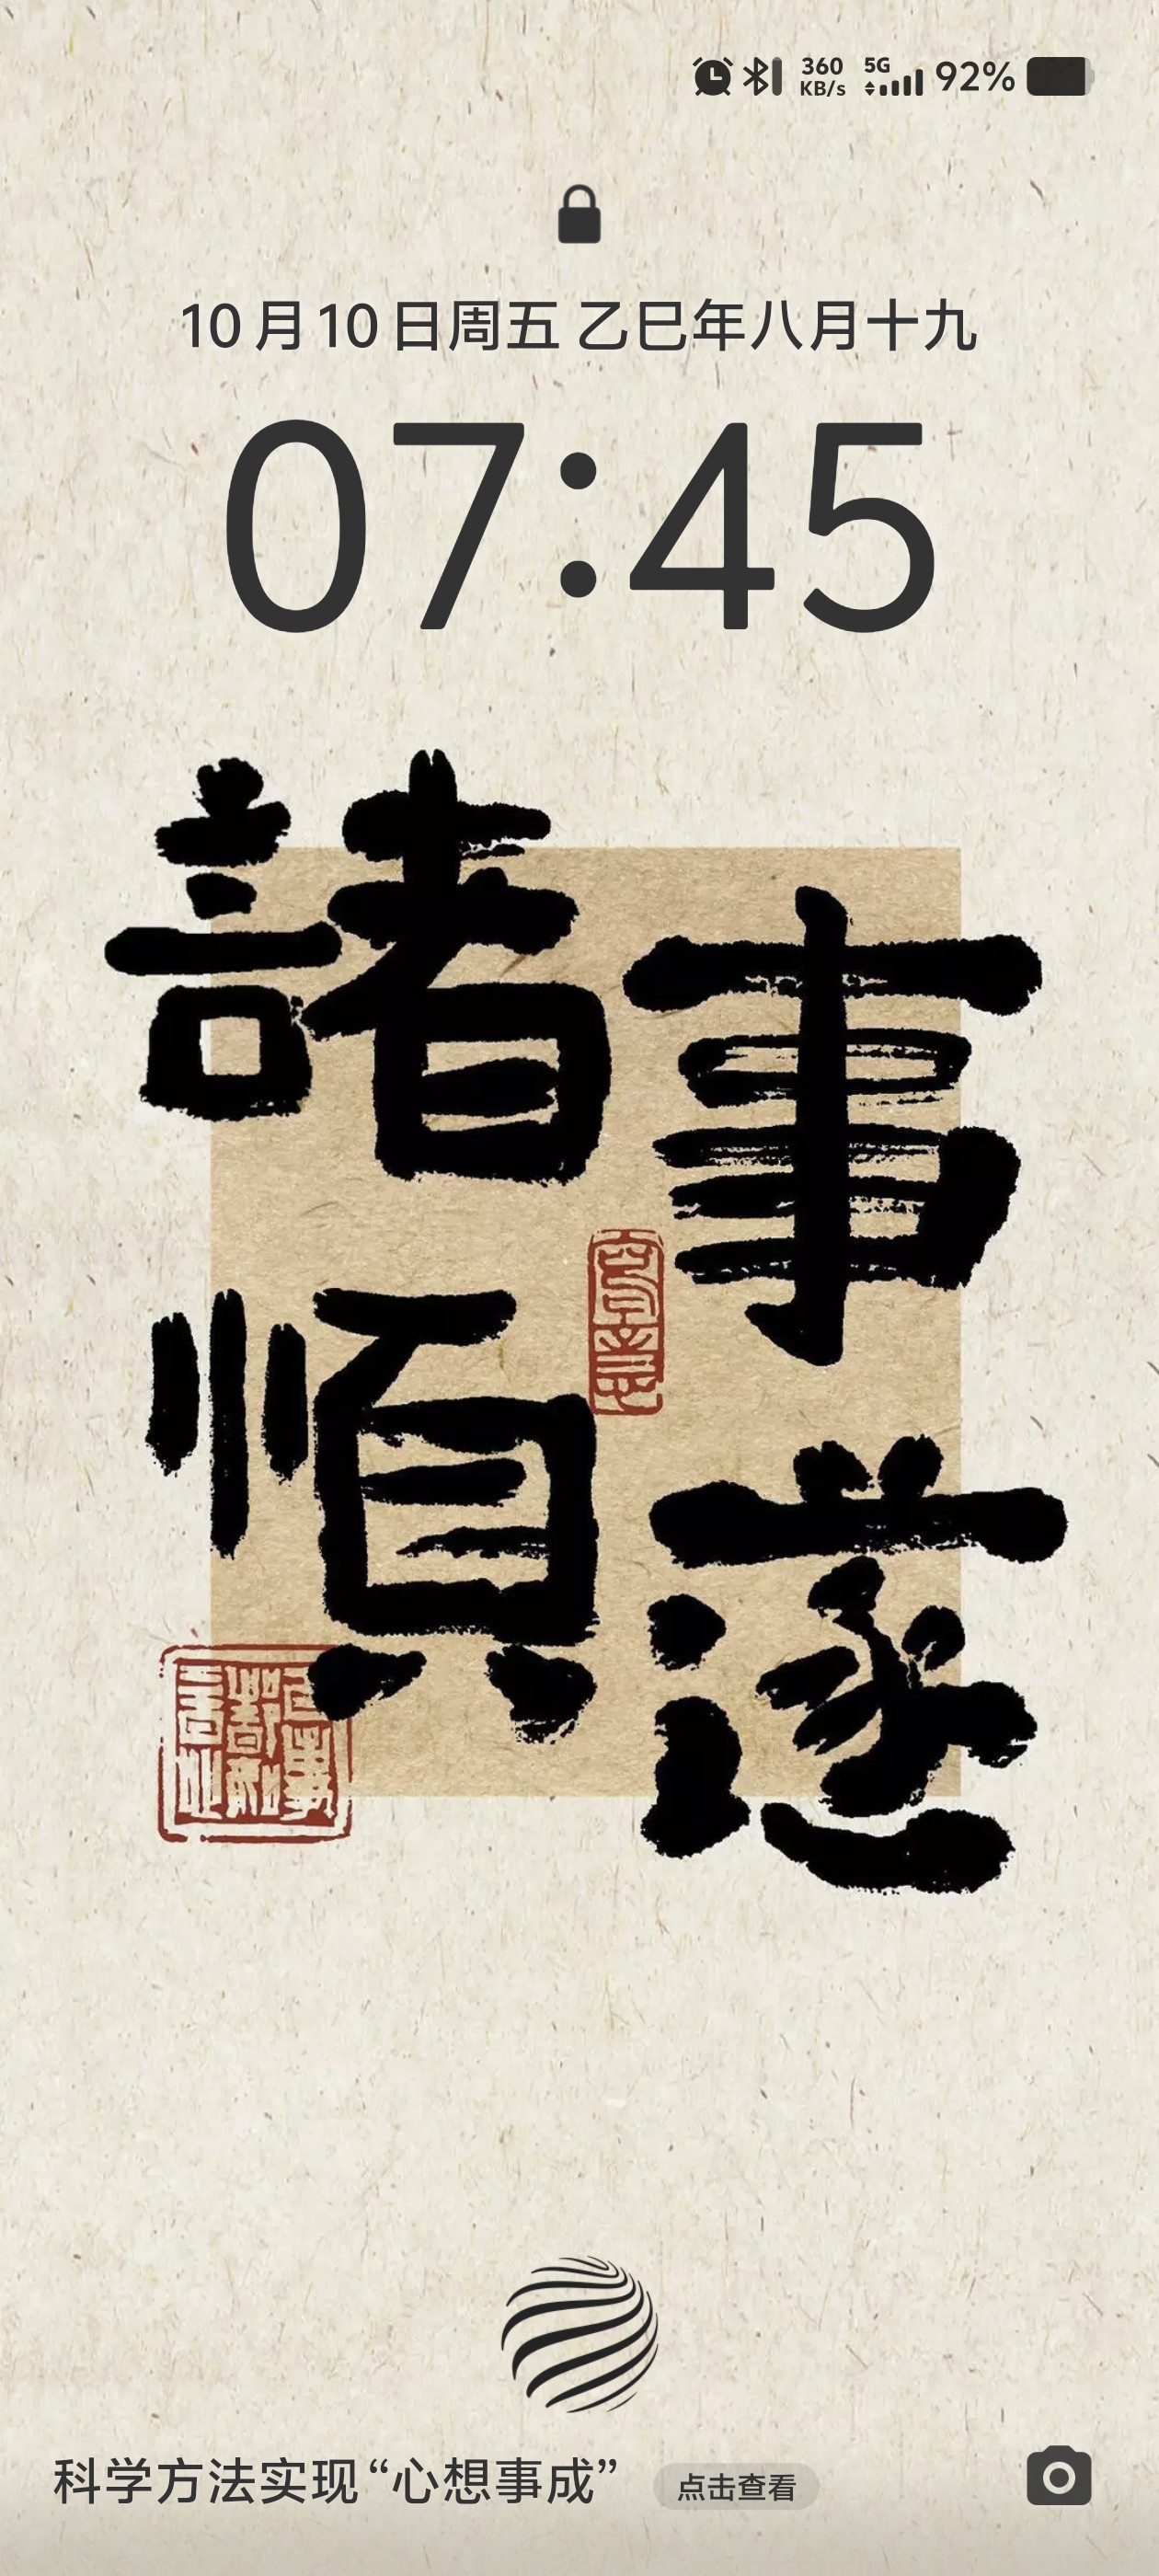 360
KB/s
5G
92%
10月10日周五 乙巳年八月十九
07:45
諸事
順遂
科学方法实现“心想事成” 点击查看